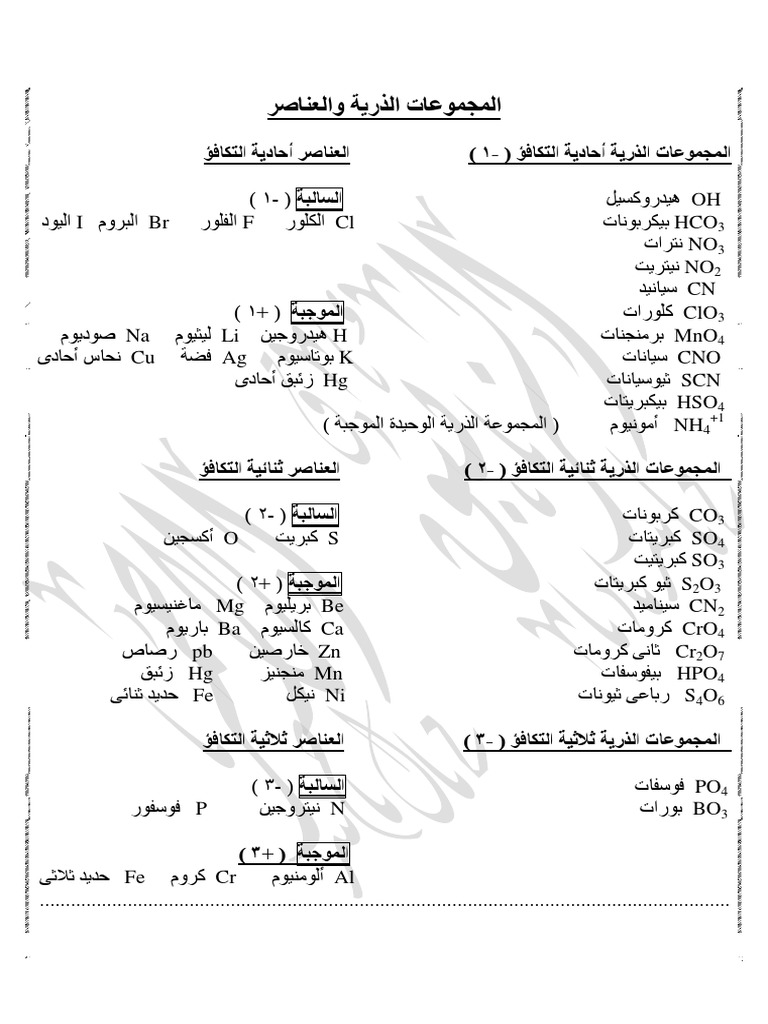 المجموعات الذرية والعناصر
المجموعات الذرية أحادية التكافؤ ( -١ )
العناصر أحادية التكافؤ
OH هيدروكسيل
السالبة ( -١ )
HCO3 بيكربونات
Cl الكلور F الفلور Br البروم I اليود
NO3 نترات
NO2 نيتريت
CN سيانيد
ClO3 كلورات
الموجبة ( +١ )
MnO4 برمنجنات
H هيدروجين Li ليثيوم Na صوديوم
CNO سيانات
K بوتاسيوم Ag فضة Cu نحاس أحادى
SCN ثيوسيانات
Hg زئبق أحادى
HSO4 بيكبريتات
NH4+1 أمونيوم ( المجموعة الذرية الوحيدة الموجبة )
المجموعات الذرية ثنائية التكافؤ ( -٢ )
العناصر ثنائية التكافؤ
CO3 كربونات
السالبة ( -٢ )
SO4 كبريتات
S كبريت O أكسجين
SO3 كبريتيت
S2O3 ثيو كبريتات
الموجبة ( +٢ )
CN2 سيناميد
Be بريليوم Mg ماغنيسيوم
CrO4 كرومات
Ca كالسيوم Ba باريوم
Cr2O7 ثانى كرومات
Zn خارصين pb رصاص
HPO4 بيفوسفات
Mn منجنيز Hg زئبق
S4O6 رباعى ثيونات
Ni نيكل Fe حديد ثنائى
المجموعات الذرية ثلاثية التكافؤ ( -٣ )
العناصر ثلاثية التكافؤ
PO4 فوسفات
السالبة ( -٣ )
BO3 بورات
N نيتروجين P فوسفور
الموجبة ( +٣ )
Al ألومنيوم Cr كروم Fe حديد ثلاثى